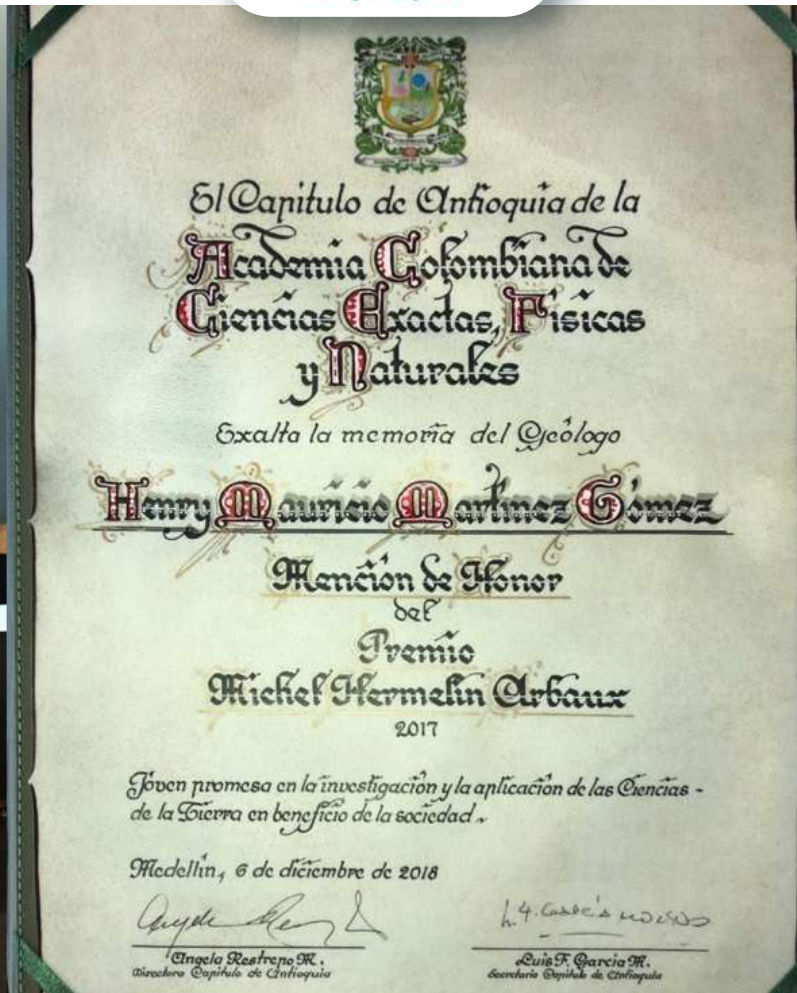 El Capitulo de Antioquia de la
Academia Colombiana de
Ciencias Exactas, Fisicas
y Naturales
Exalta la memoria del Geólogo
Henry Mauricio Martínez Gómez
Mención de Honor
del
Premio
Michel Hermelin Arbaux
2017
Joven promesa en la investigación y la aplicación de las Ciencias -
de la Tierra en beneficio de la sociedad.
Medellín, 6 de diciembre de 2018
Angela Restrepo M.
Luis F. García M.
Directora Capitulo de Antioquia
Secretario Capitulo de Antioquia